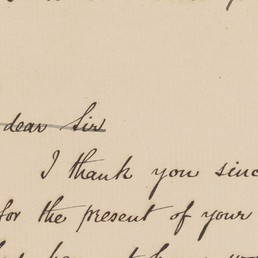 dear Sir
I thank you sinc
for the present of your